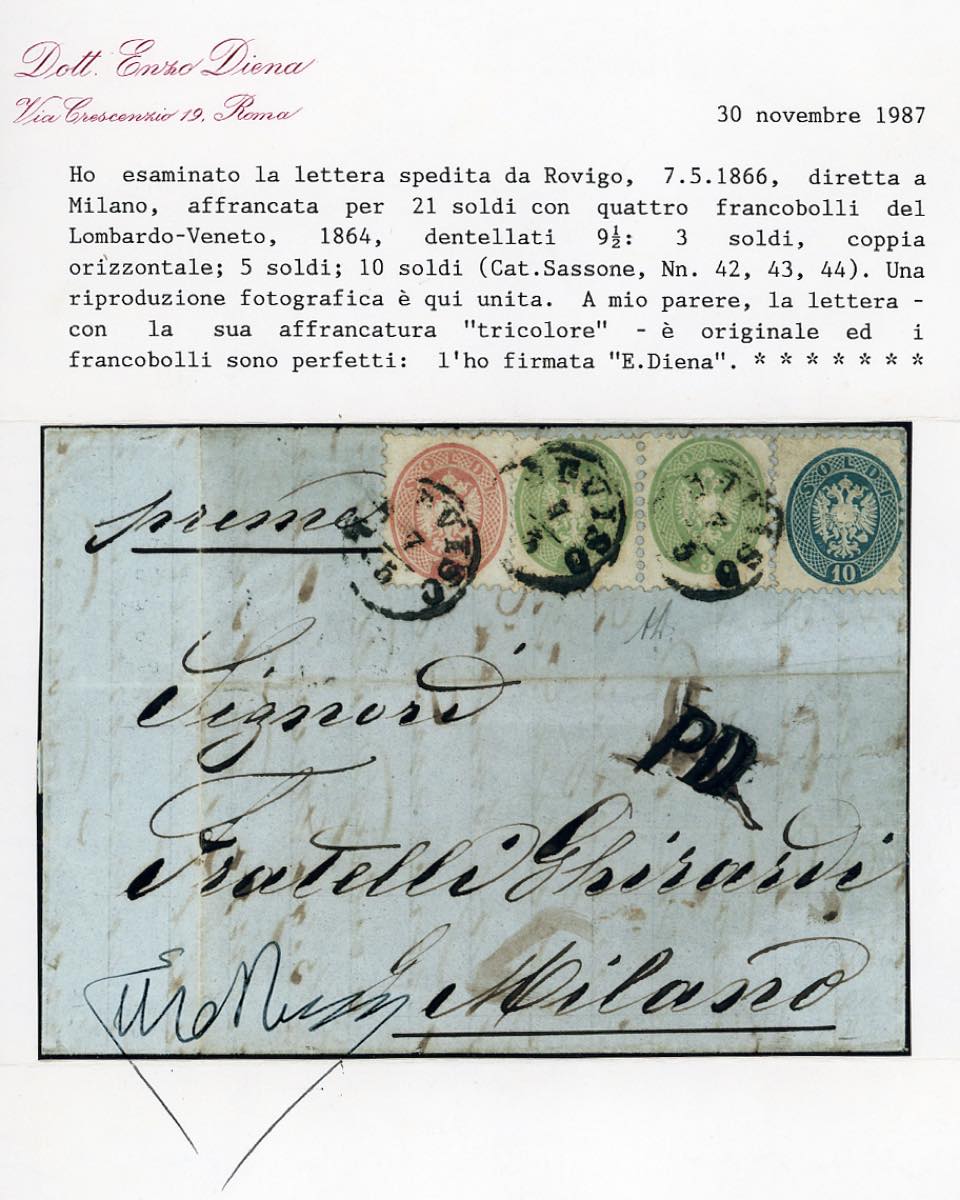 Dott. Enzo Diena
Via Crescenzio 19, Roma
30 novembre 1987
Ho esaminato la lettera spedita da Rovigo, 7.5.1866, diretta a
Milano, affrancata per 21 soldi con quattro francobolli del
Lombardo-Veneto, 1864, dentellati 9½: 3 soldi, coppia
orizzontale; 5 soldi; 10 soldi (Cat.Sassone, Nn. 42, 43, 44). Una
riproduzione fotografica è qui unita. A mio parere, la lettera -
con la sua affrancatura "tricolore" - è originale ed i
francobolli sono perfetti: l'ho firmata "E.Diena". * * * * * * *
SOLDI SOLDI SOLDI SOLDI
10
prema
Signori
PD
Fratelli Ghirardi
Milano